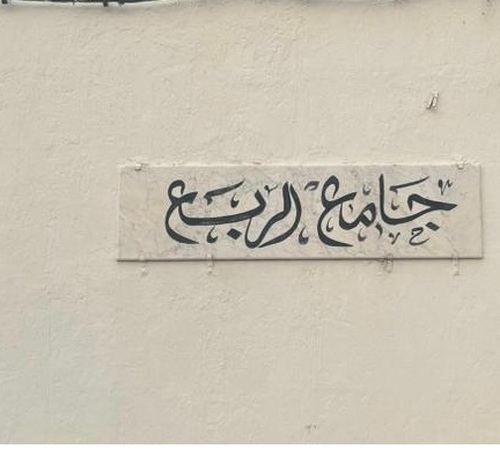 جامع الربع